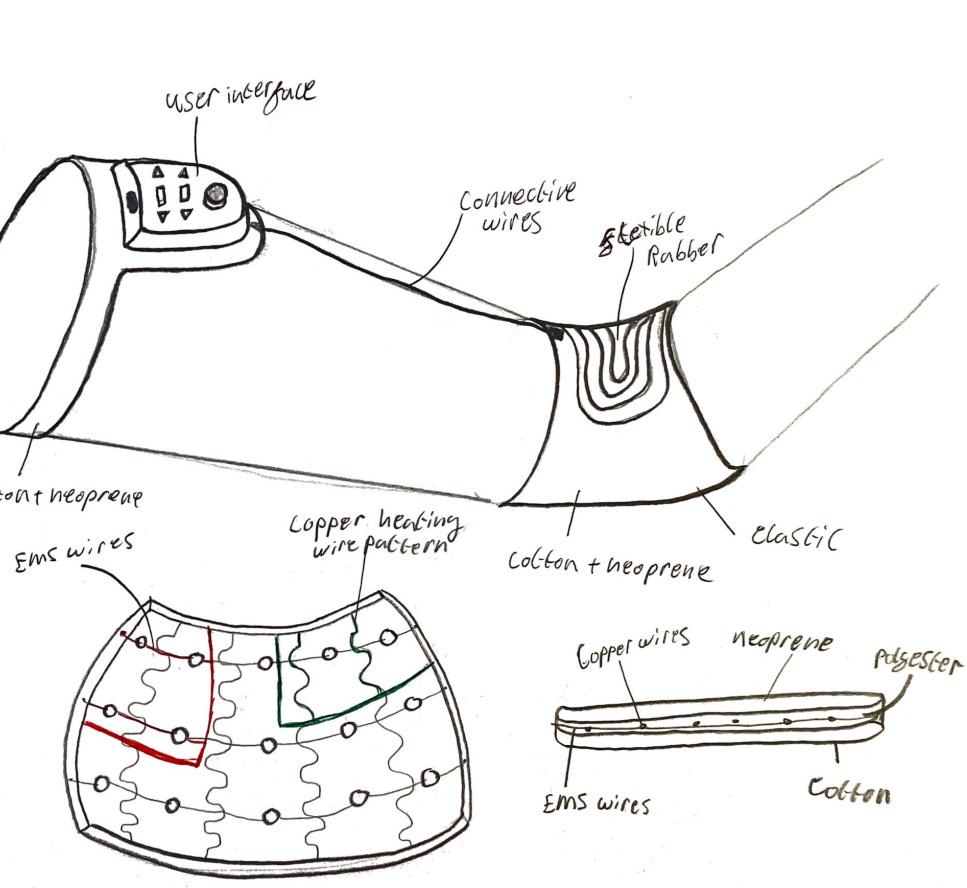 user interface
Connective
wires
flexible
Rubber
ton + neoprene
EMS wires
Copper heating
wire pattern
Cotton + neoprene
Elastic
Copper wires
neoprene
Polyester
EMS wires
Cotton